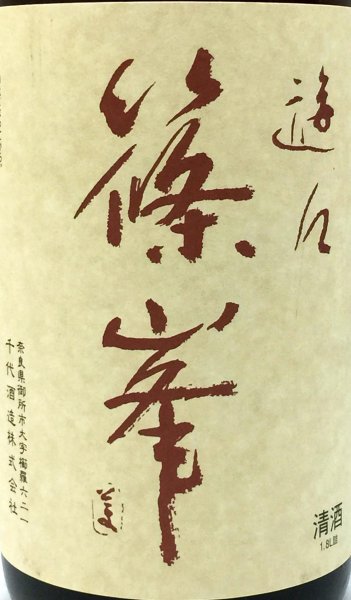 遊々
篠峯
奈良県御所市大字櫛羅六二一
千代酒造株式会社
清酒
1.8L詰